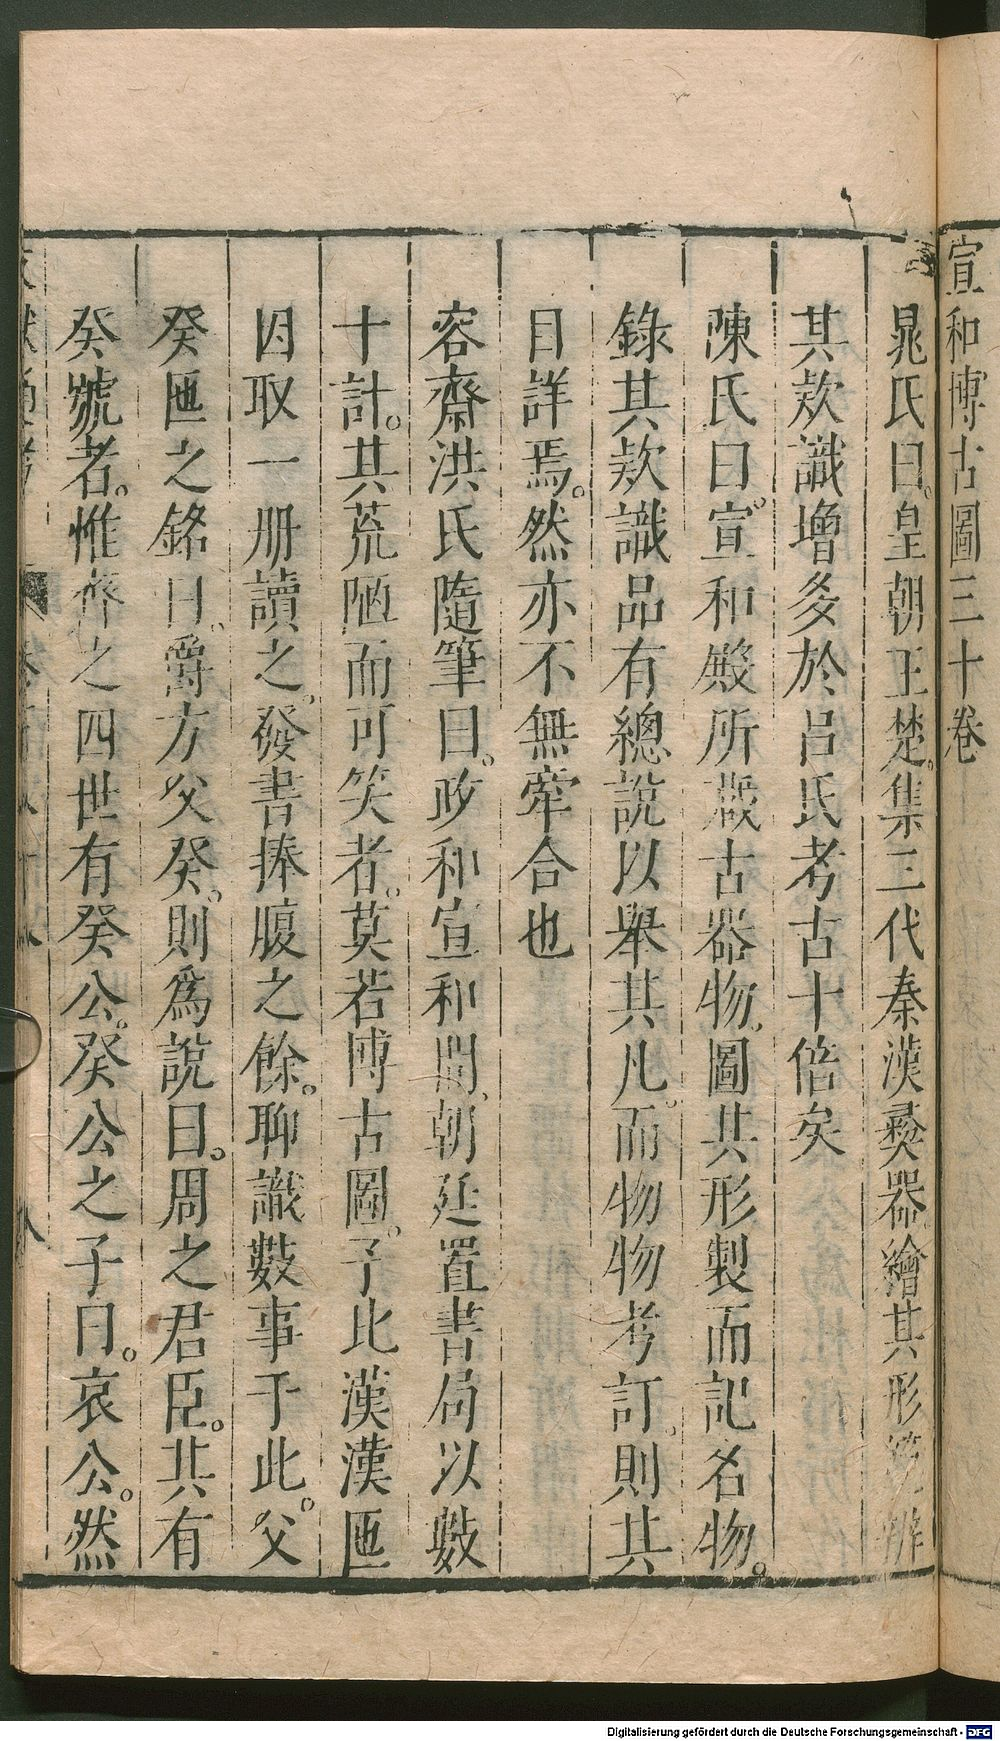 宣和博古圖三十卷
晁氏曰。皇朝王楚。集三代秦漢彝器。繪其形範。辨
其欵識增多於呂氏考古十倍矣
陳氏曰。宣和殿所藏古器物。圖其形製而記名物。
錄其欵識品有總說以舉其凡。而物物考訂。則其
目詳焉。然亦不無牽合也
容齋洪氏隨筆曰。政和宣和間。朝廷置書局以數
十計。其荒陋而可笑者。莫若博古圖。予比漢漢匜
因取一册讀之。發書捧腹之餘。聊識數事于此。父
癸匜之銘曰。爵方父癸。則為說曰。周之君臣。其有
癸號者。惟齊之四世有癸公。癸公之子曰。哀公。然
Digitalisierung gefördert durch die Deutsche Forschungsgemeinschaft - DFG